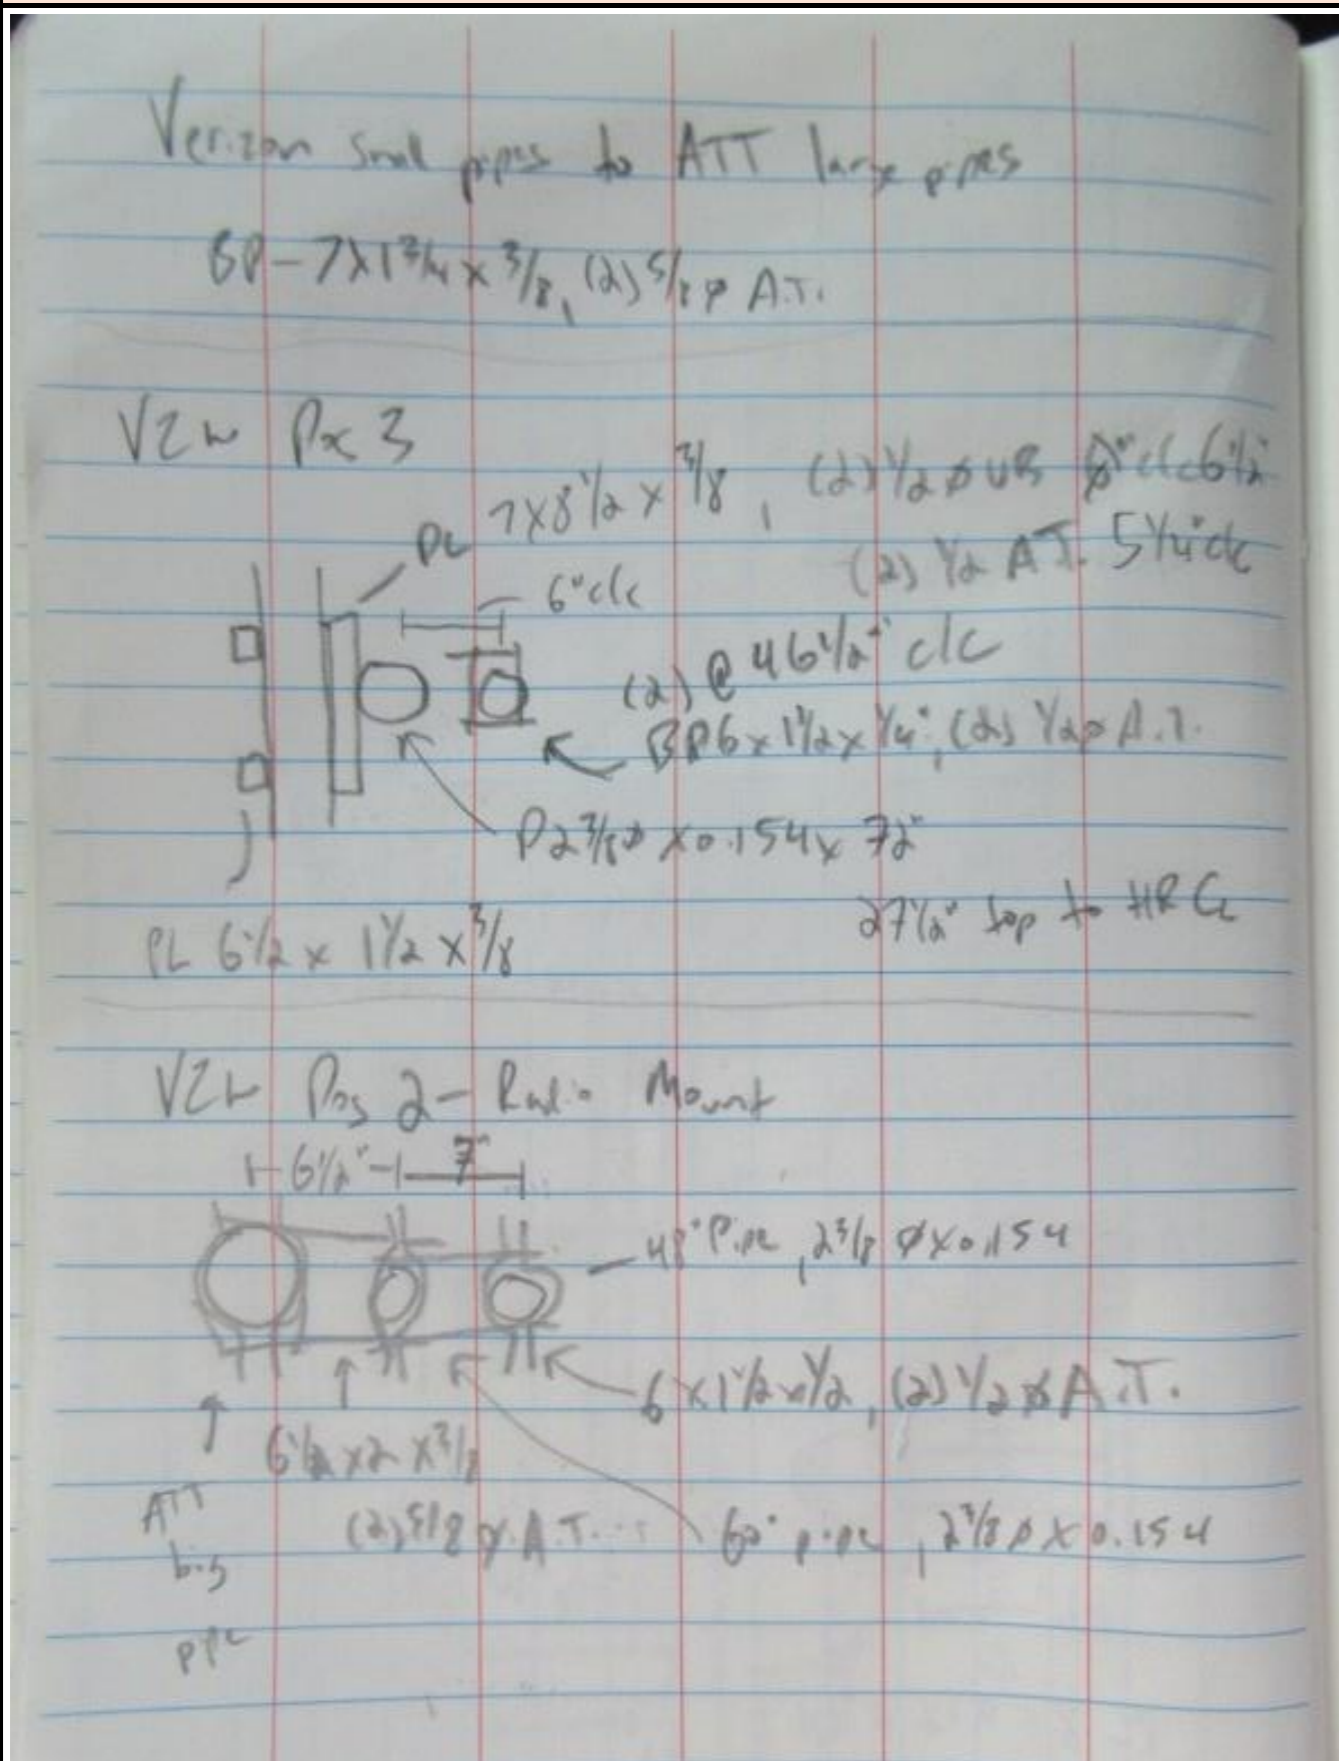 Verizon small pipes to ATT large pipes
BP - 7 x 1 3/4 x 3/8, (2) 5/8 ø A.T.
VZW Pos 3
PL 7 x 8 1/2 x 3/8, (2) 1/2 ø UB c/c 6 1/2"
(2) 1/2 A.T. 5 1/4" c/c
6" c/c
(2) @ 46 1/2" c/c
BP 6 x 1 1/2 x 1/4", (2) 1/2 ø A.T.
P 2 3/8 ø x 0.154 x 72"
27 1/2" top to HR CL
PL 6 1/2 x 1 1/2 x 3/8
VZW Pos 2 - Radio Mount
6 1/2" 7"
48" Pipe, 2 3/8 ø x 0.154
6 x 1 1/2 x 1/2, (2) 1/2 ø A.T.
6 1/2 x 2 x 3/8
(2) 5/8 ø A.T.
pipe, 2 3/8 ø x 0.154
ATT
big
pipe